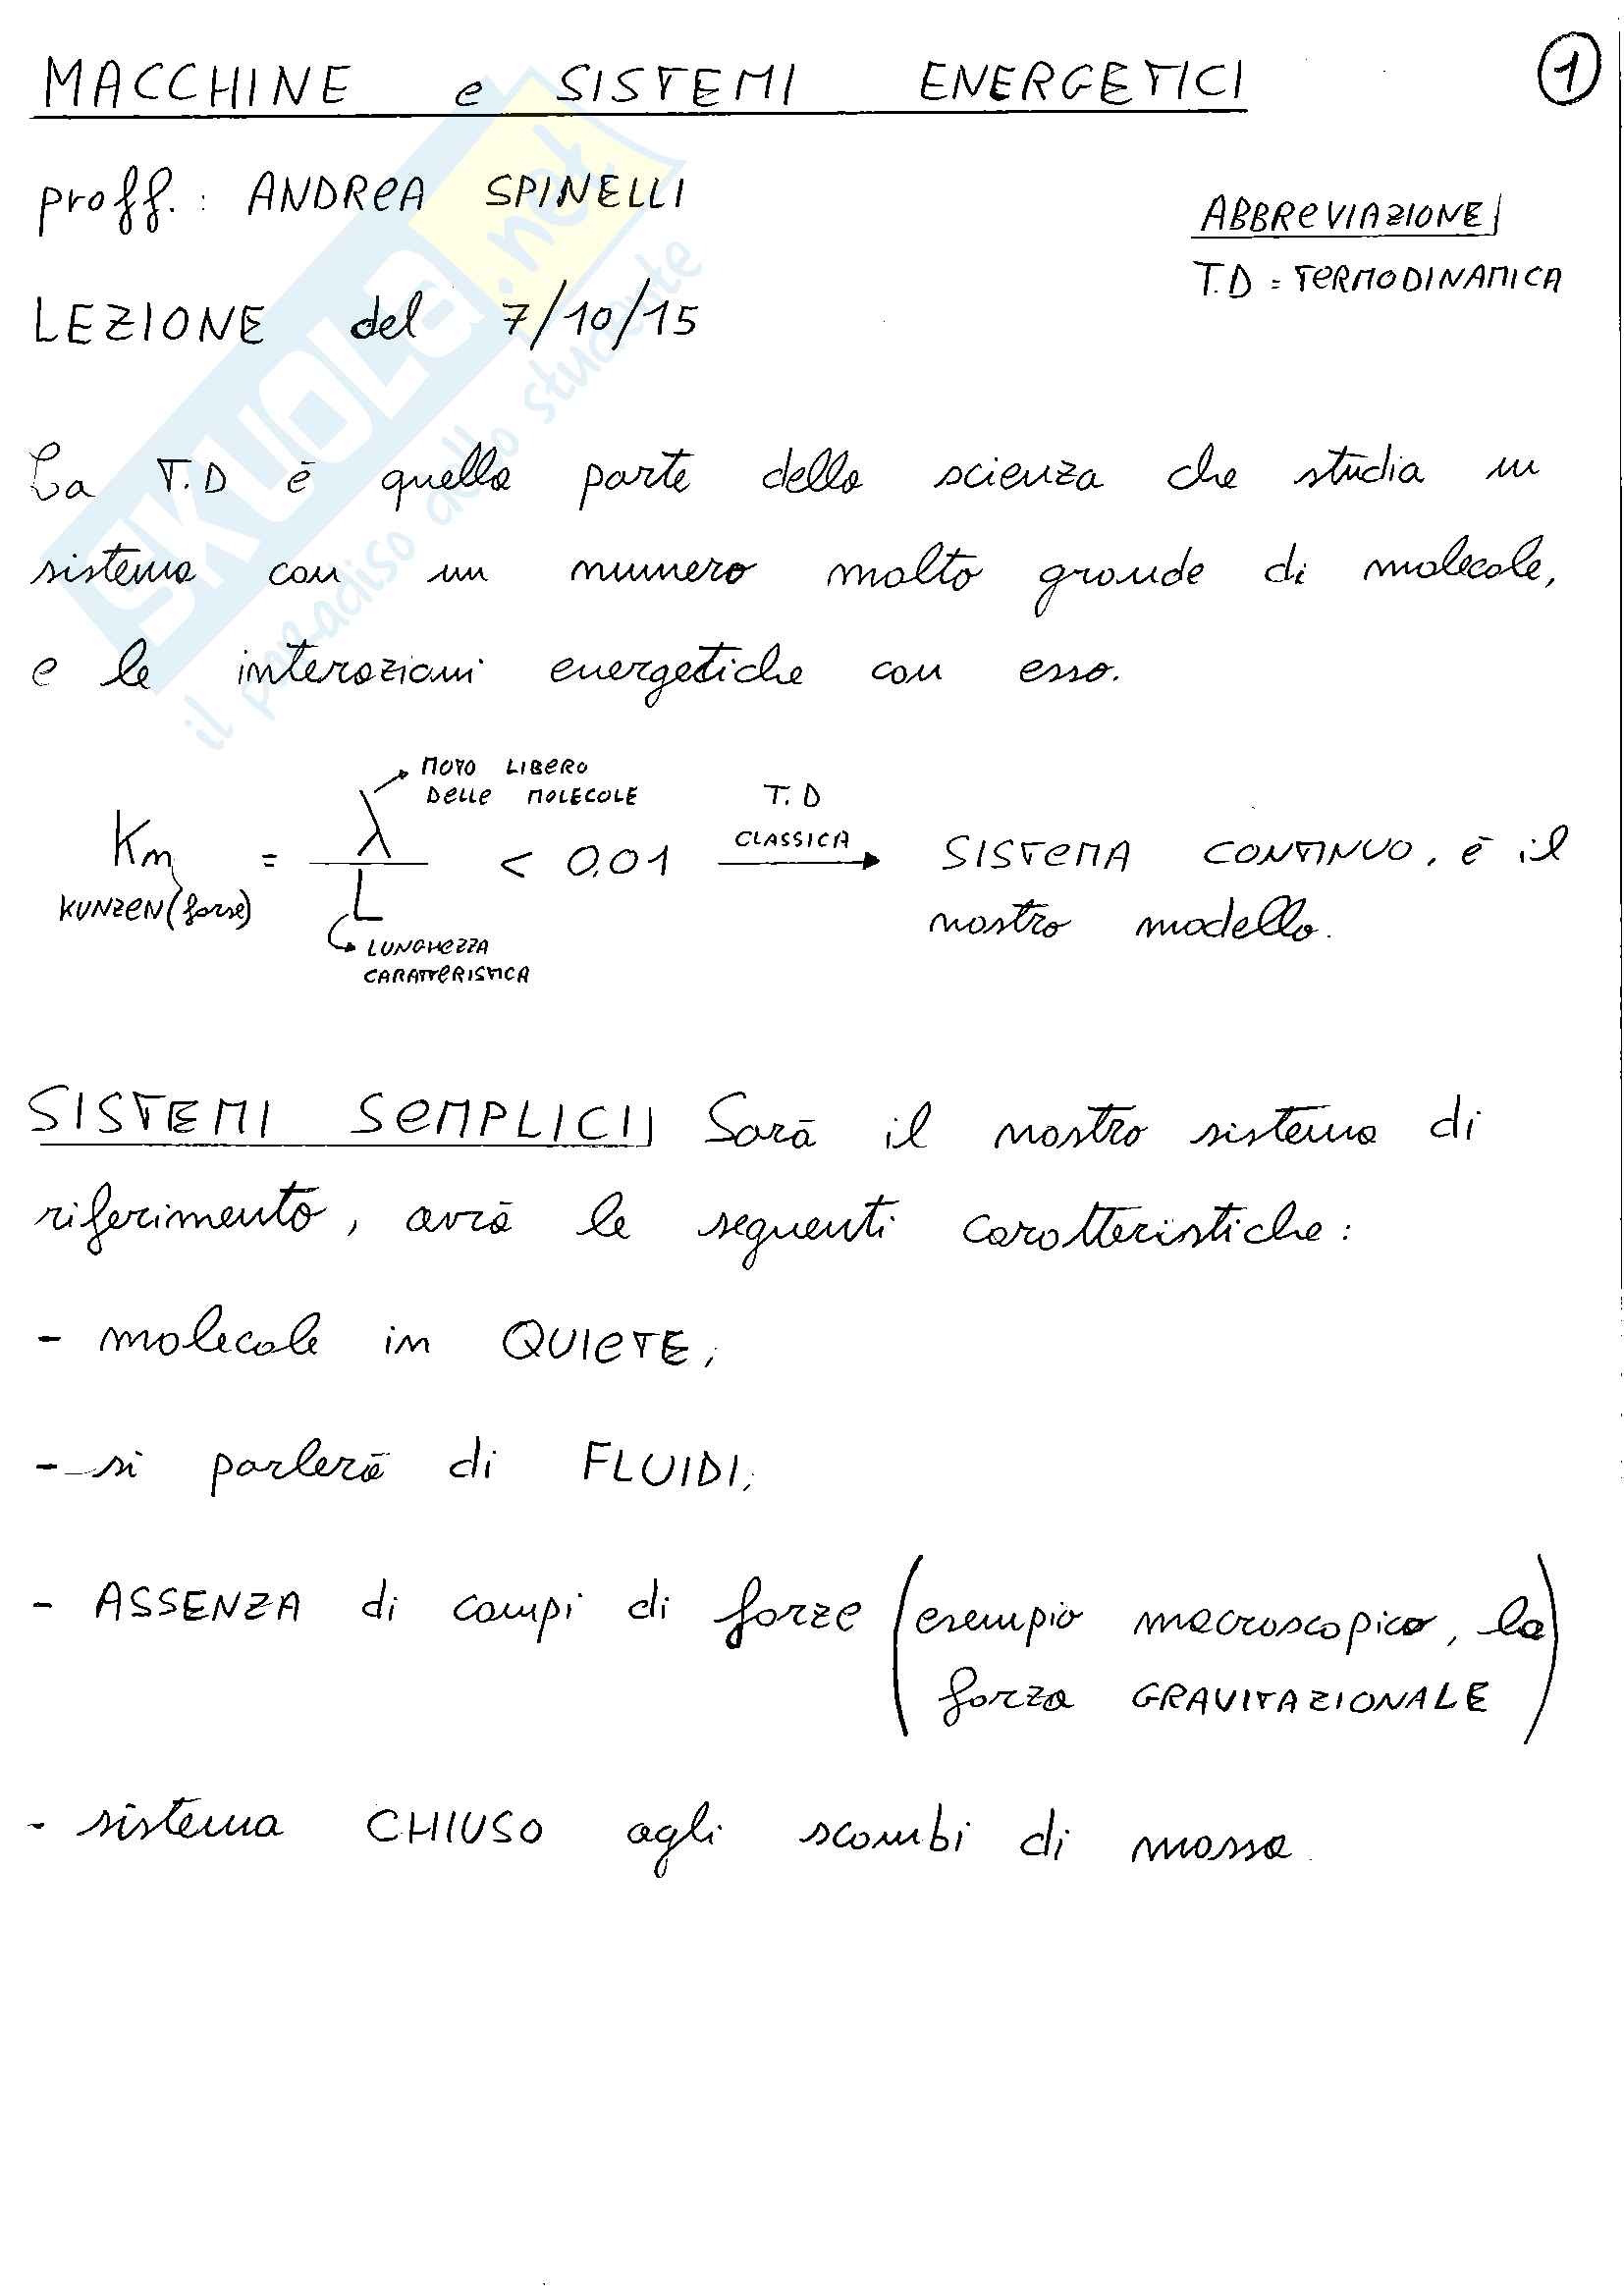 MACCHINE e SISTEMI ENERGETICI
1
proff.: ANDREA SPINELLI
ABBREVIAZIONE
T.D = TERMODINAMICA
LEZIONE del 7/10/15
SKUOLa.net
il paradiso dello studente
La T.D è quella parte della scienza che studia un
sistema con un numero molto grande di molecole,
e le interazioni energetiche con esso.
MOTO LIBERO
DELLE MOLECOLE
Kn = λ / L < 0,01
T.D
CLASSICA
SISTEMA CONTINUO, è il
nostro modello.
KUNZEN (forse)
LUNGHEZZA
CARATTERISTICA
SISTEMI SEMPLICI Sarà il nostro sistema di
riferimento, avrà le seguenti caratteristiche:
- molecole in QUIETE;
- si parlerà di FLUIDI;
- ASSENZA di campi di forze (esempio macroscopico, la
forza GRAVITAZIONALE)
- sistema CHIUSO agli scambi di massa.